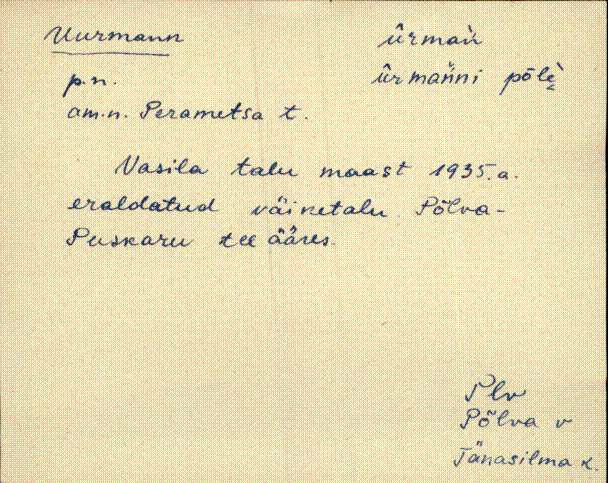 Uurmann
ûrmaǹ
p.n.
ûrmǎnni põlè̬
am.n. Perametsa t.
Vasila talu maast 1935.a.
eraldatud väiketalu Põlva-
Puskaru tee ääres.
Plv
Põlva v
Tänasilma k.